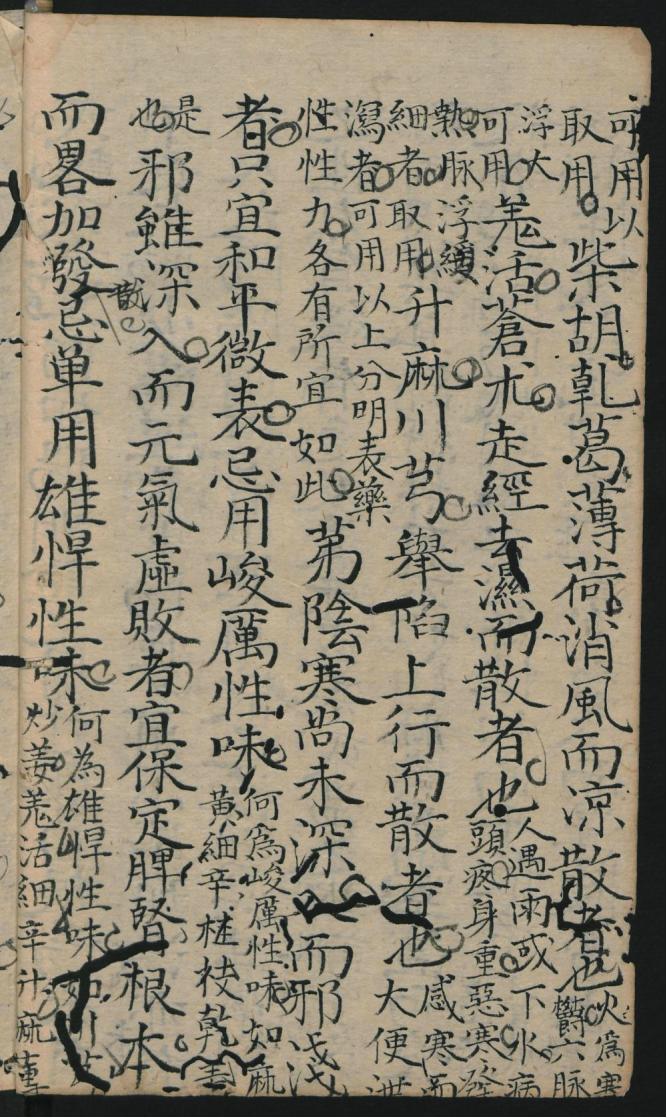 可用以
取用
柴胡乾葛薄荷消風而凉散者也
火為寒
鬱六脉
浮大
可用
羗活蒼朮走經去濕而散者也
人遇雨或下水病
頭疼身重惡寒發
熱脉浮緩
細者取用
升麻川芎舉陷上行而散者也
感寒而
大便泄
瀉者可用以上分明表藥
性性力各有所宜如此
苐陰寒尚未深入而邪浅
者只宜和平微表忌用峻厲性味
何爲峻厲性味如麻
黄細辛桂枝乾姜
是
也
邪雖深入而元氣虛敗者宜保定脾腎根本
而畧加發散忌单用雄悍性味
何為雄悍性味如川芎
炒姜羗活細辛升麻